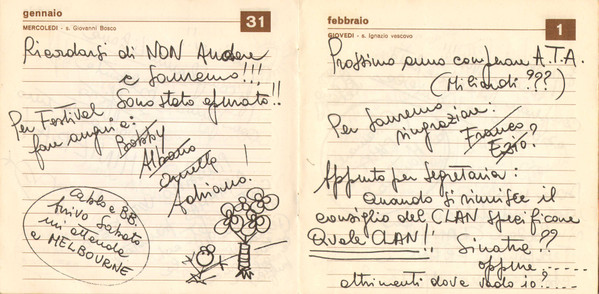 gennaio
31
MERCOLEDI - s. Giovanni Bosco
Ricordarsi di NON Andare
a Sanremo!!!
Sono stato epurato!!
Per Festival
fare auguri a:
Bobby
Albano
Ornella
Adriano!
cablo a BB.
arrivo Sabato
mi attenda
a MELBOURNE
febbraio
1
GIOVEDI - s. Ignazio vescovo
Prossimo anno comperare A.T.A.
(Miliardi???)
Per Sanremo
ringraziare:
Franco
Ezio?
Appunto per Segretaria:
quando si riunisce il
consiglio del CLAN specificare
Quale CLAN!!
Sinatra??
oppure......
altrimenti dove vado io?.....